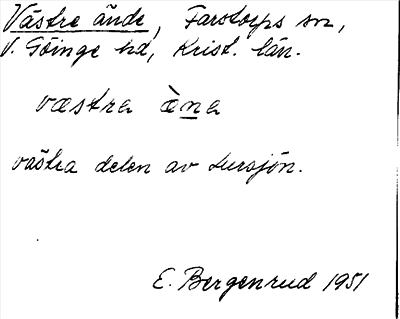 Västra ände, Farstorps sn,
V. Göinge hd, Krist. län.
væstra ὲna
västra delen av Lursjön.
E. Bergenrud 1951